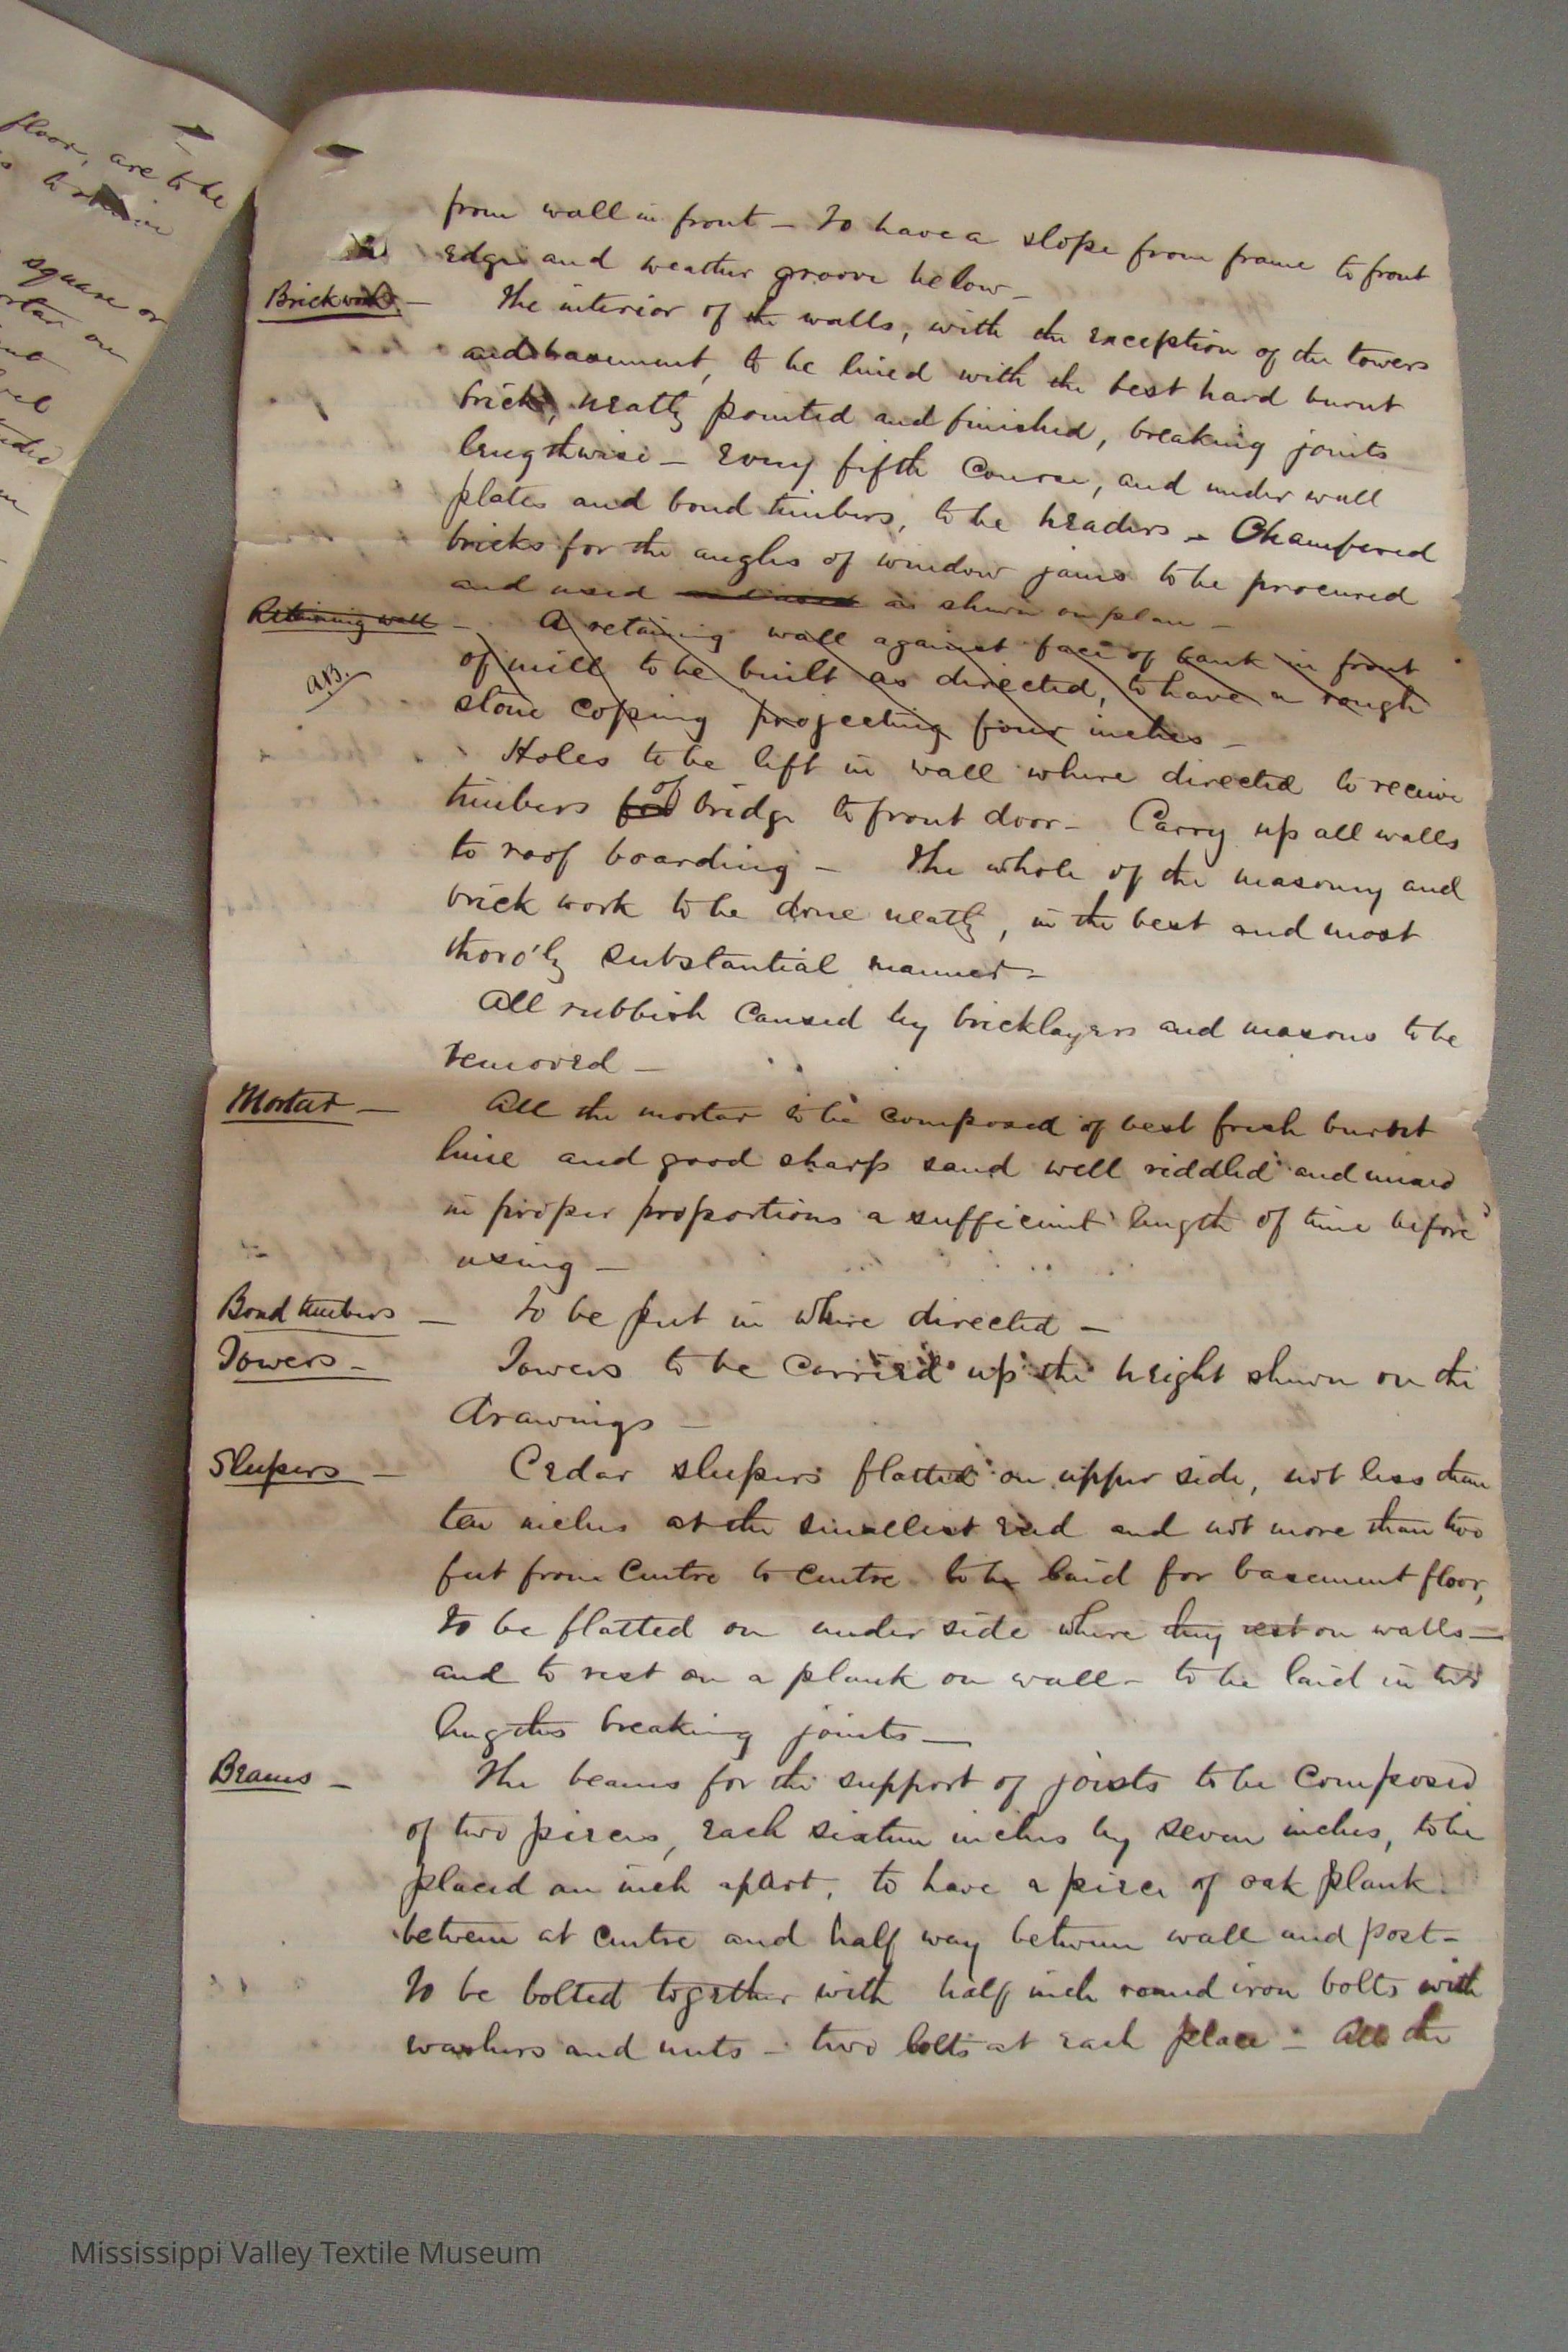 floor, are to be
square or
from wall in front – To have a slope from frame to front
edge and weather groove below –
Brickwork. – The interior of the walls, with the exception of the towers
and basement, to be lined with the best hard burnt
brick, neatly pointed and finished, breaking joints
lengthwise – Every fifth course, and under wall
plates and bond timbers, to be headers – Chamfered
bricks for the angles of window jams to be procured
and used and used as shewn on plan –
Retaining wall – A retaining wall against face of bank in front
of mill to be built as directed, to have a rough
A.B.
stone coping projecting four inches –
Holes to be left in wall where directed to receive
timbers for of bridge to front door – Carry up all walls
to roof boarding – The whole of the masonry and
brick work to be done neatly, in the best and most
thoro'ly substantial manner –
All rubbish caused by bricklayers and masons to be
removed –
Mortar – All the mortar to be composed of best fresh burnt
lime and good sharp sand well riddled and mixed
in proper proportions a sufficient length of time before
using –
Bond timbers – To be put in where directed –
Towers – Towers to be carried up the height shewn on the
drawings –
Sleepers – Cedar sleepers flatted on upper side, not less than
ten inches at the smallest end and not more than two
feet from centre to centre to be laid for basement floor,
to be flatted on under side where they rest on walls –
and to rest on a plank on wall – to be laid in two
lengths breaking joints –
Beams – The beams for the support of joists to be composed
of two pieces, each sixteen inches by seven inches, to be
placed an inch apart, to have a piece of oak plank
between at centre and half way between wall and post –
To be bolted together with half inch round iron bolts with
washers and nuts – two bolts at each place – All the
Mississippi Valley Textile Museum